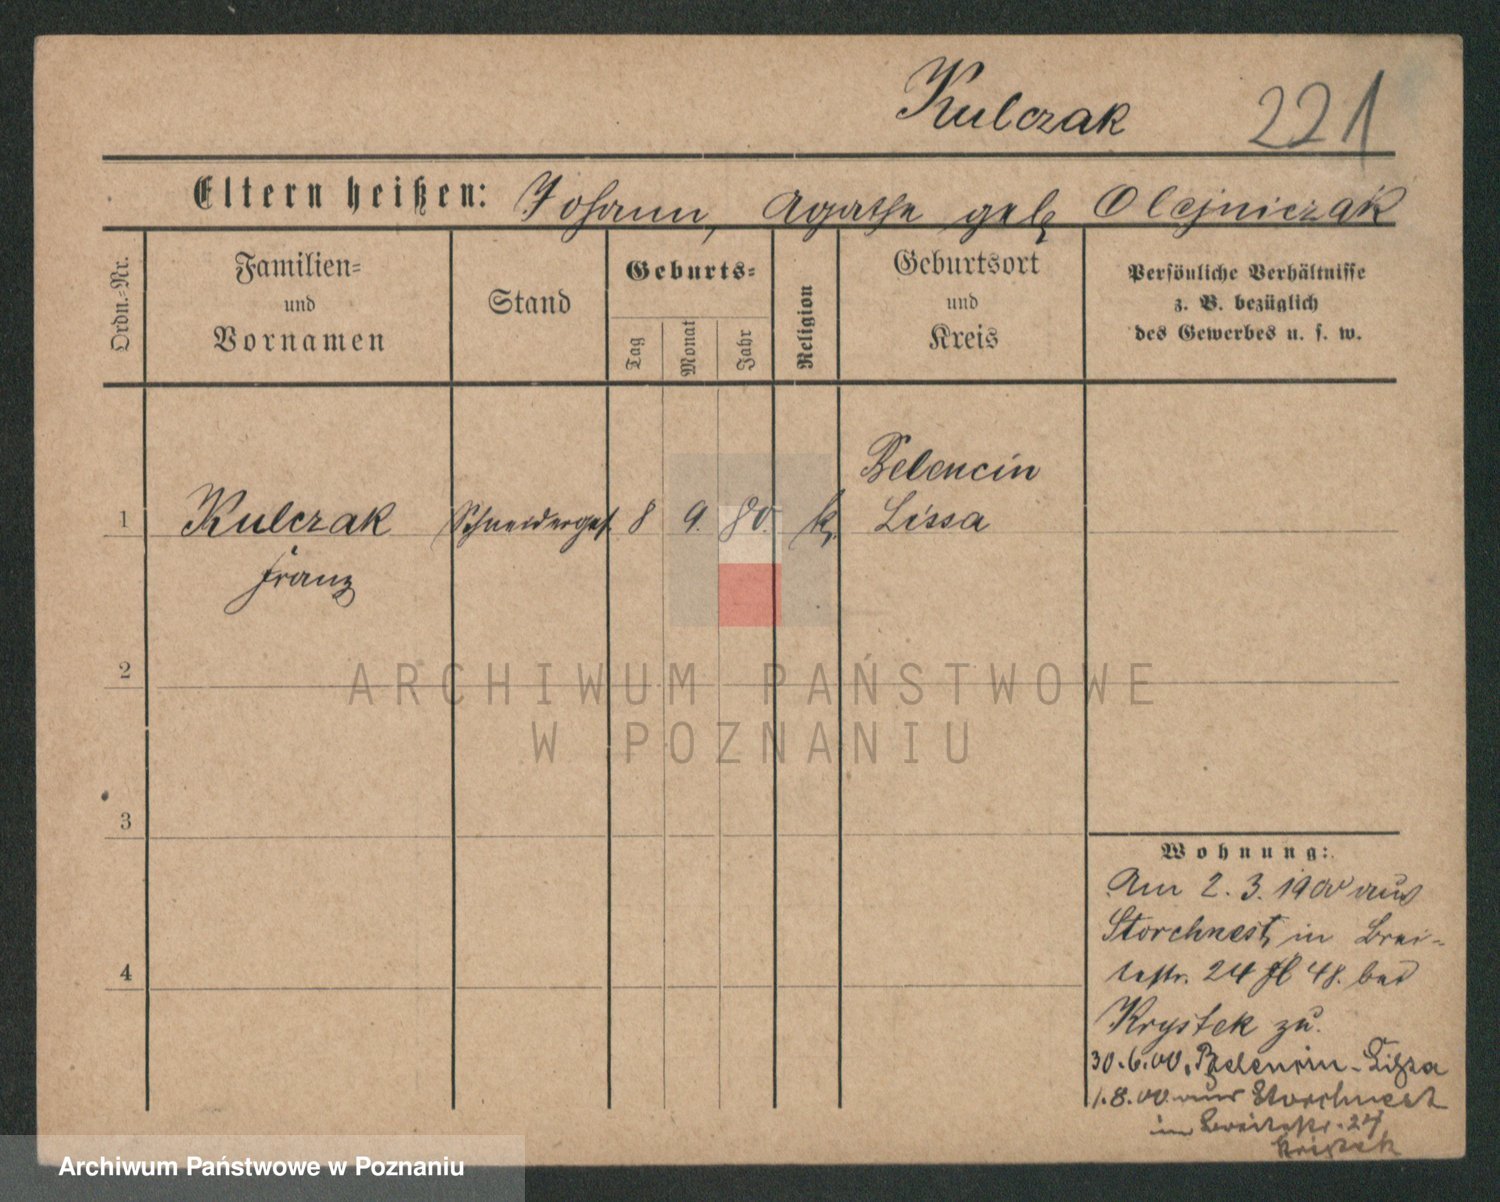 Kulczak 221
Eltern heißen: Johann, Agathe geb. Olejniczak
Ordn.=Nr.
Familien=
und
Vornamen
Stand
Geburts=
Tag
Monat
Jahr
Religion
Geburtsort
und
Kreis
Persönliche Verhältnisse
z. B. bezüglich
des Gewerbes u. s. w.
1
Kulczak
Franz
Schneiderges.
8
9.
80.
k.
Belencin
Lissa
2
3
4
Wohnung:
Am 2. 3. 1900 aus
Storchnest, in Brei-
testr. 24 48. bei
Krystek zu.
30.6.00. Belencin - Lissa
1.8.00. aus Storchnest
in Breitestr. 24
ARCHIWUM PAŃSTWOWE
W POZNANIU
Archiwum Państwowe w Poznaniu